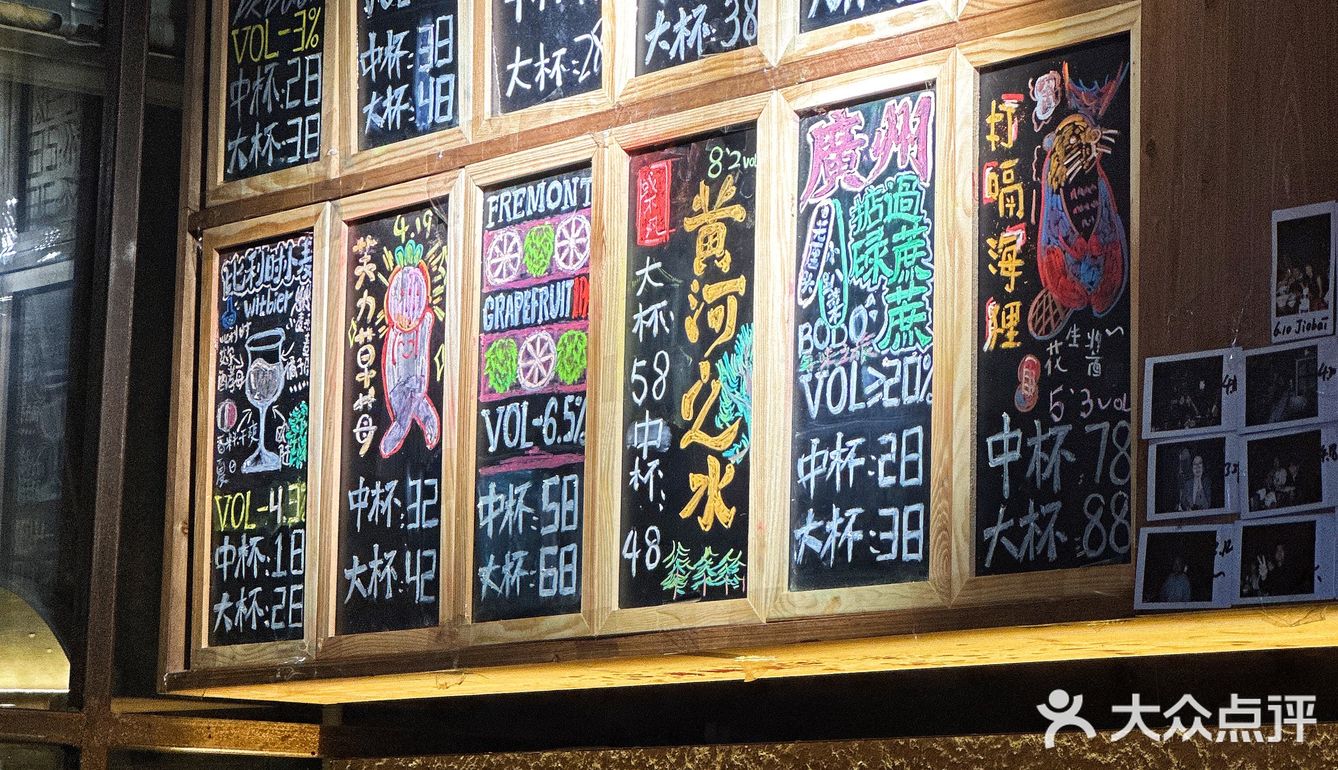 VOL-3%
中杯:28
大杯:38
中杯:38
大杯:48
大杯:28
大杯:38
比利时小麦
witbier
VOL-4.3%
中杯:18
大杯:28
4.19
英力草莓
中杯:32
大杯:42
FREMONT
GRAPEFRUIT
VOL-6.5%
中杯:58
大杯:68
8.2vol
黄河之水
大杯58中杯:48
廣州
掂過碌蔗
蔗
BODO:
VOL≥20%
中杯:28
大杯:38
打嗝海狸
花生酱
5.3vol
中杯:78
大杯:88
6.10 Jiobei
大众点评